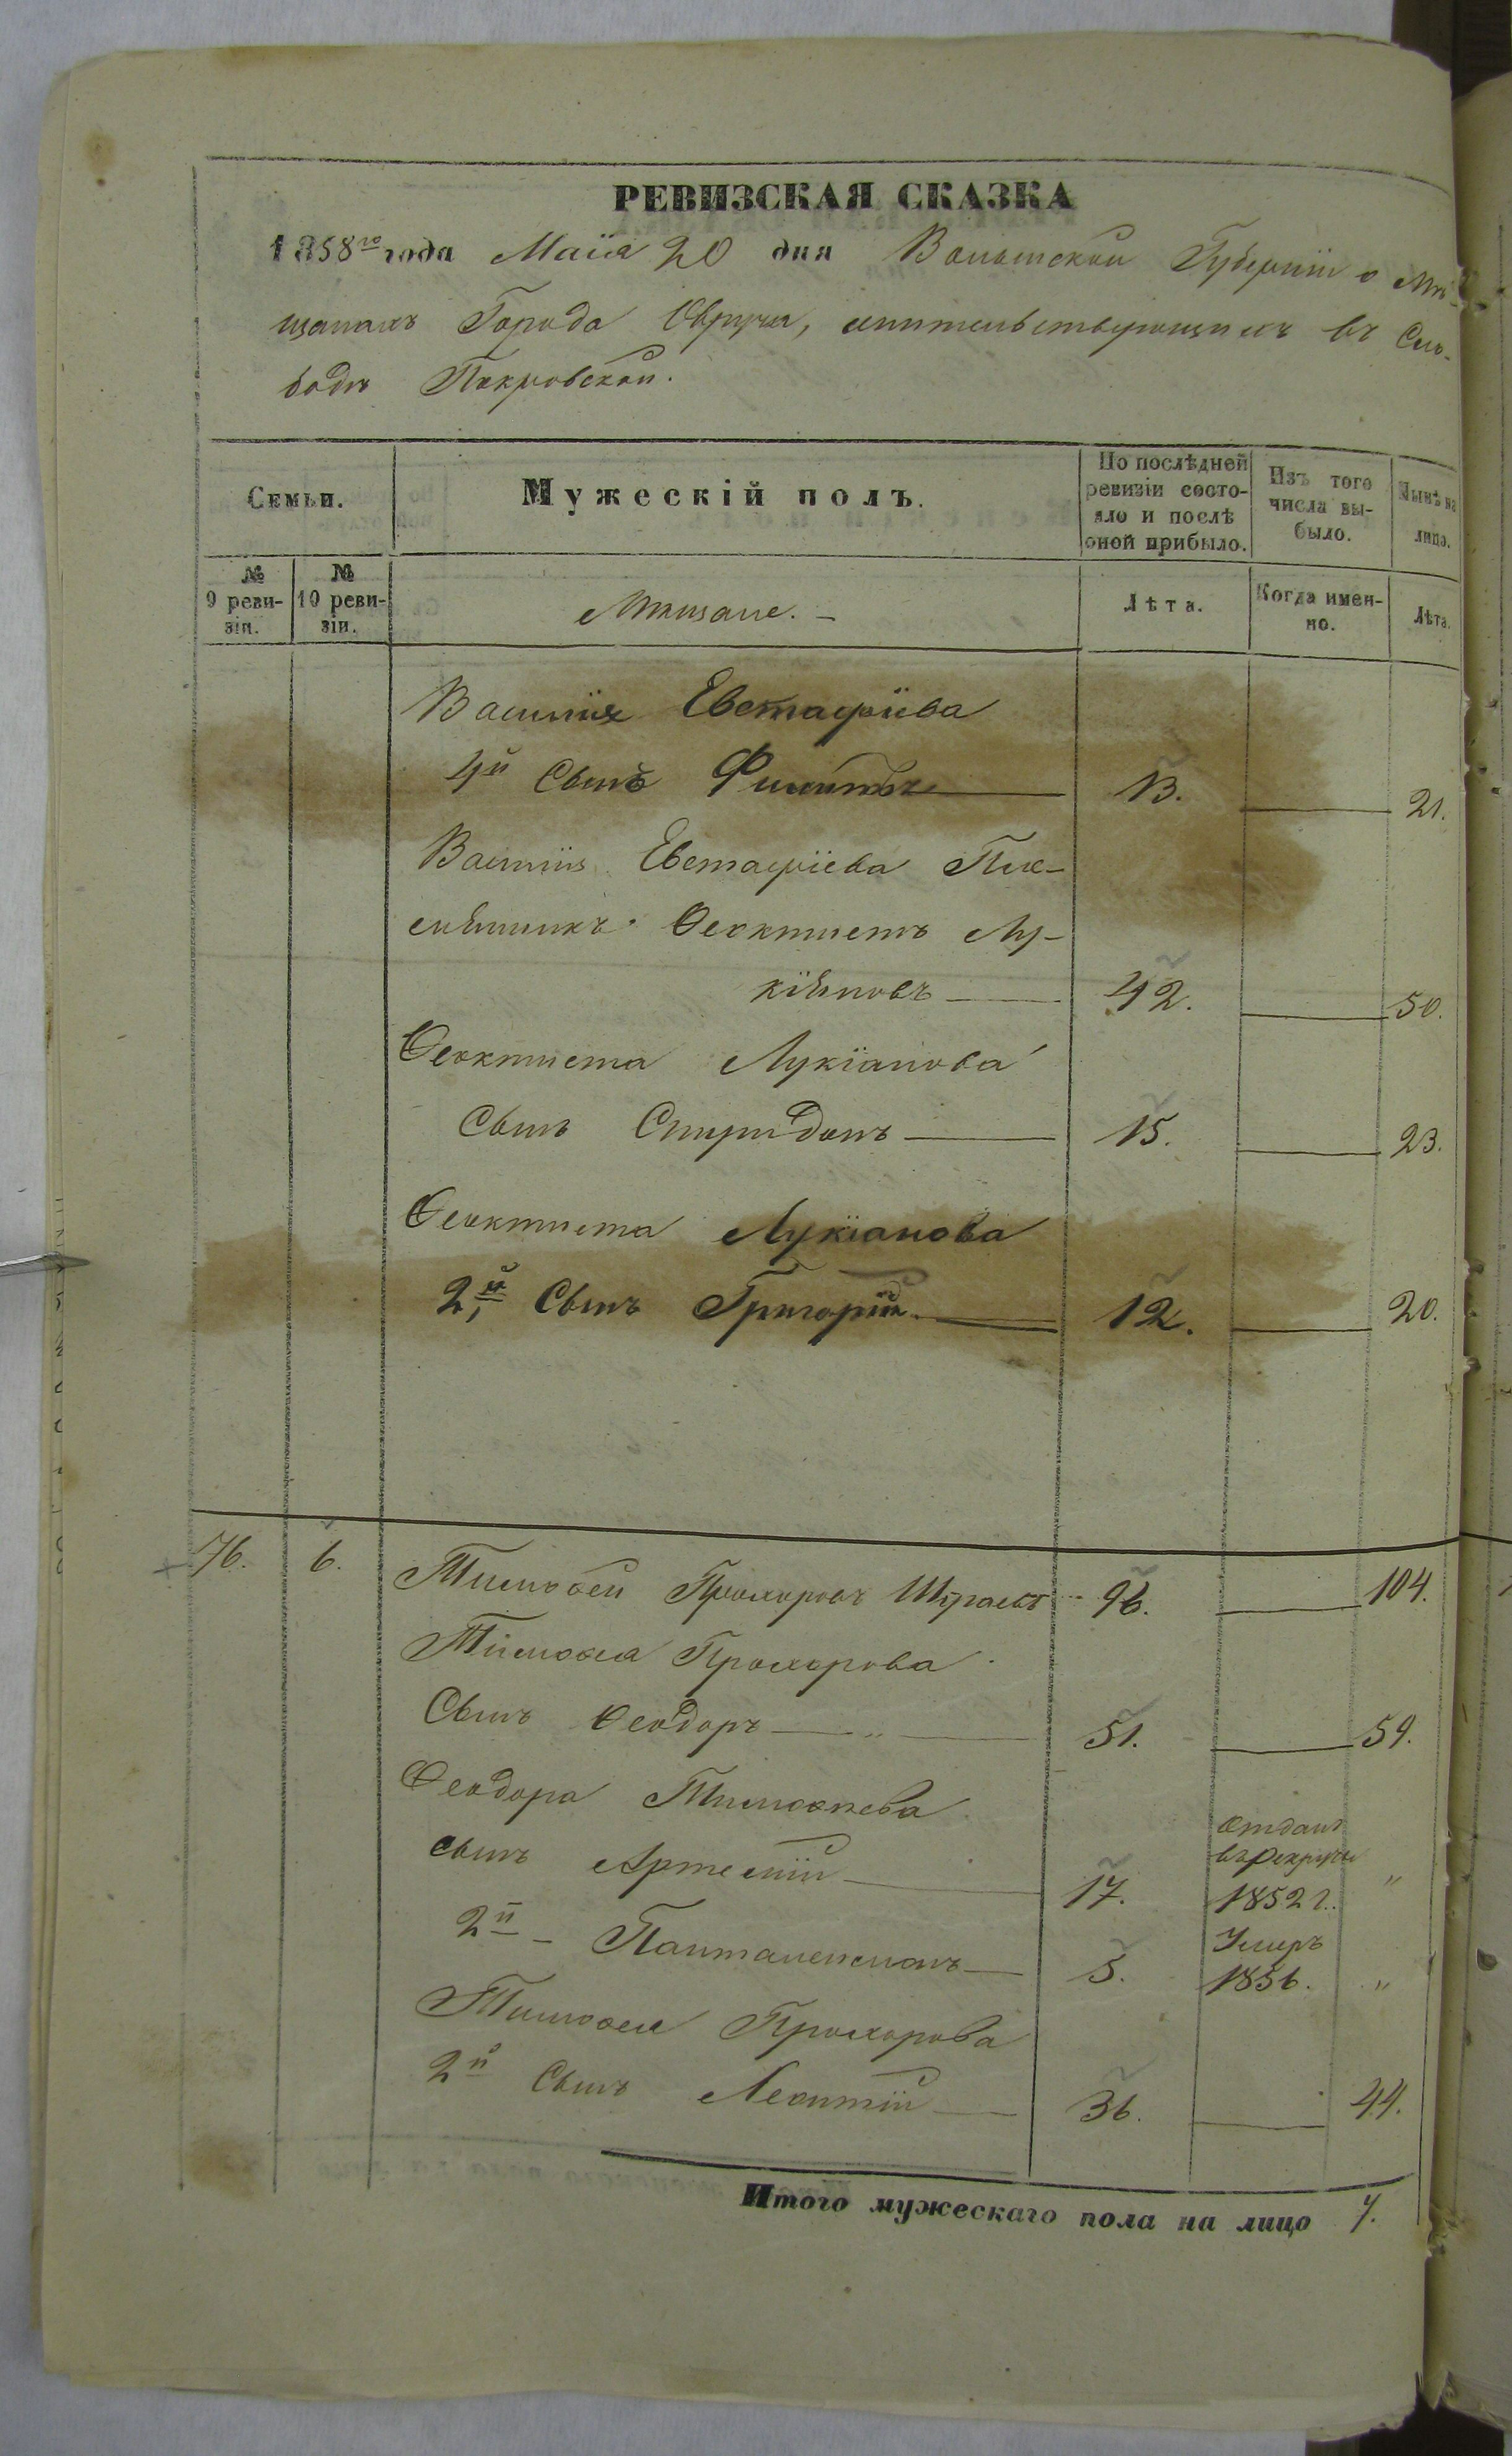 РЕВИЗСКАЯ СКАЗКА
1858го года Маiя 20 дня Волынской Губернiи о Мѣ-
щанахъ Города Овруча, жительствующихъ въ Сло-
бодѣ Покровской.
Семьи.
Мужескiй полъ.
По послѣдней ревизiи состо-яло и послѣ оной прибыло.
Изъ того числа вы-было.
Нынѣ на лицо.
№ 9 реви-зiи.
№ 10 реви-зiи.
Мѣщане.
Лѣта.
Когда имен-но.
Лѣта.
Василiя Евстафiева
4й Сынъ Филипъ 13. 21.
Василiя Евстафiева Пле-
мянникъ Ѳеоктистъ Лу-
кiяновъ 42. 50.
Ѳеоктиста Лукiанова
Сынъ Спиридонъ 15. 23.
Ѳеоктиста Лукiанова
2й Сынъ Григорiй 12. 20.
76. 6. Тимоѳей Прохоровъ 96. 104.
Тимоѳея Прохорова
Сынъ Ѳеодоръ 51. 59.
Ѳеодора Тимоѳѣева
сынъ Артемiй 17. отданъ въ рекруты 1852 г. "
2й - Пантелеимонъ 5. Умеръ 1856. "
Тимоѳея Прохорова
2й Сынъ Леонтiй 36. 44.
Итого мужескаго пола на лицо 7.